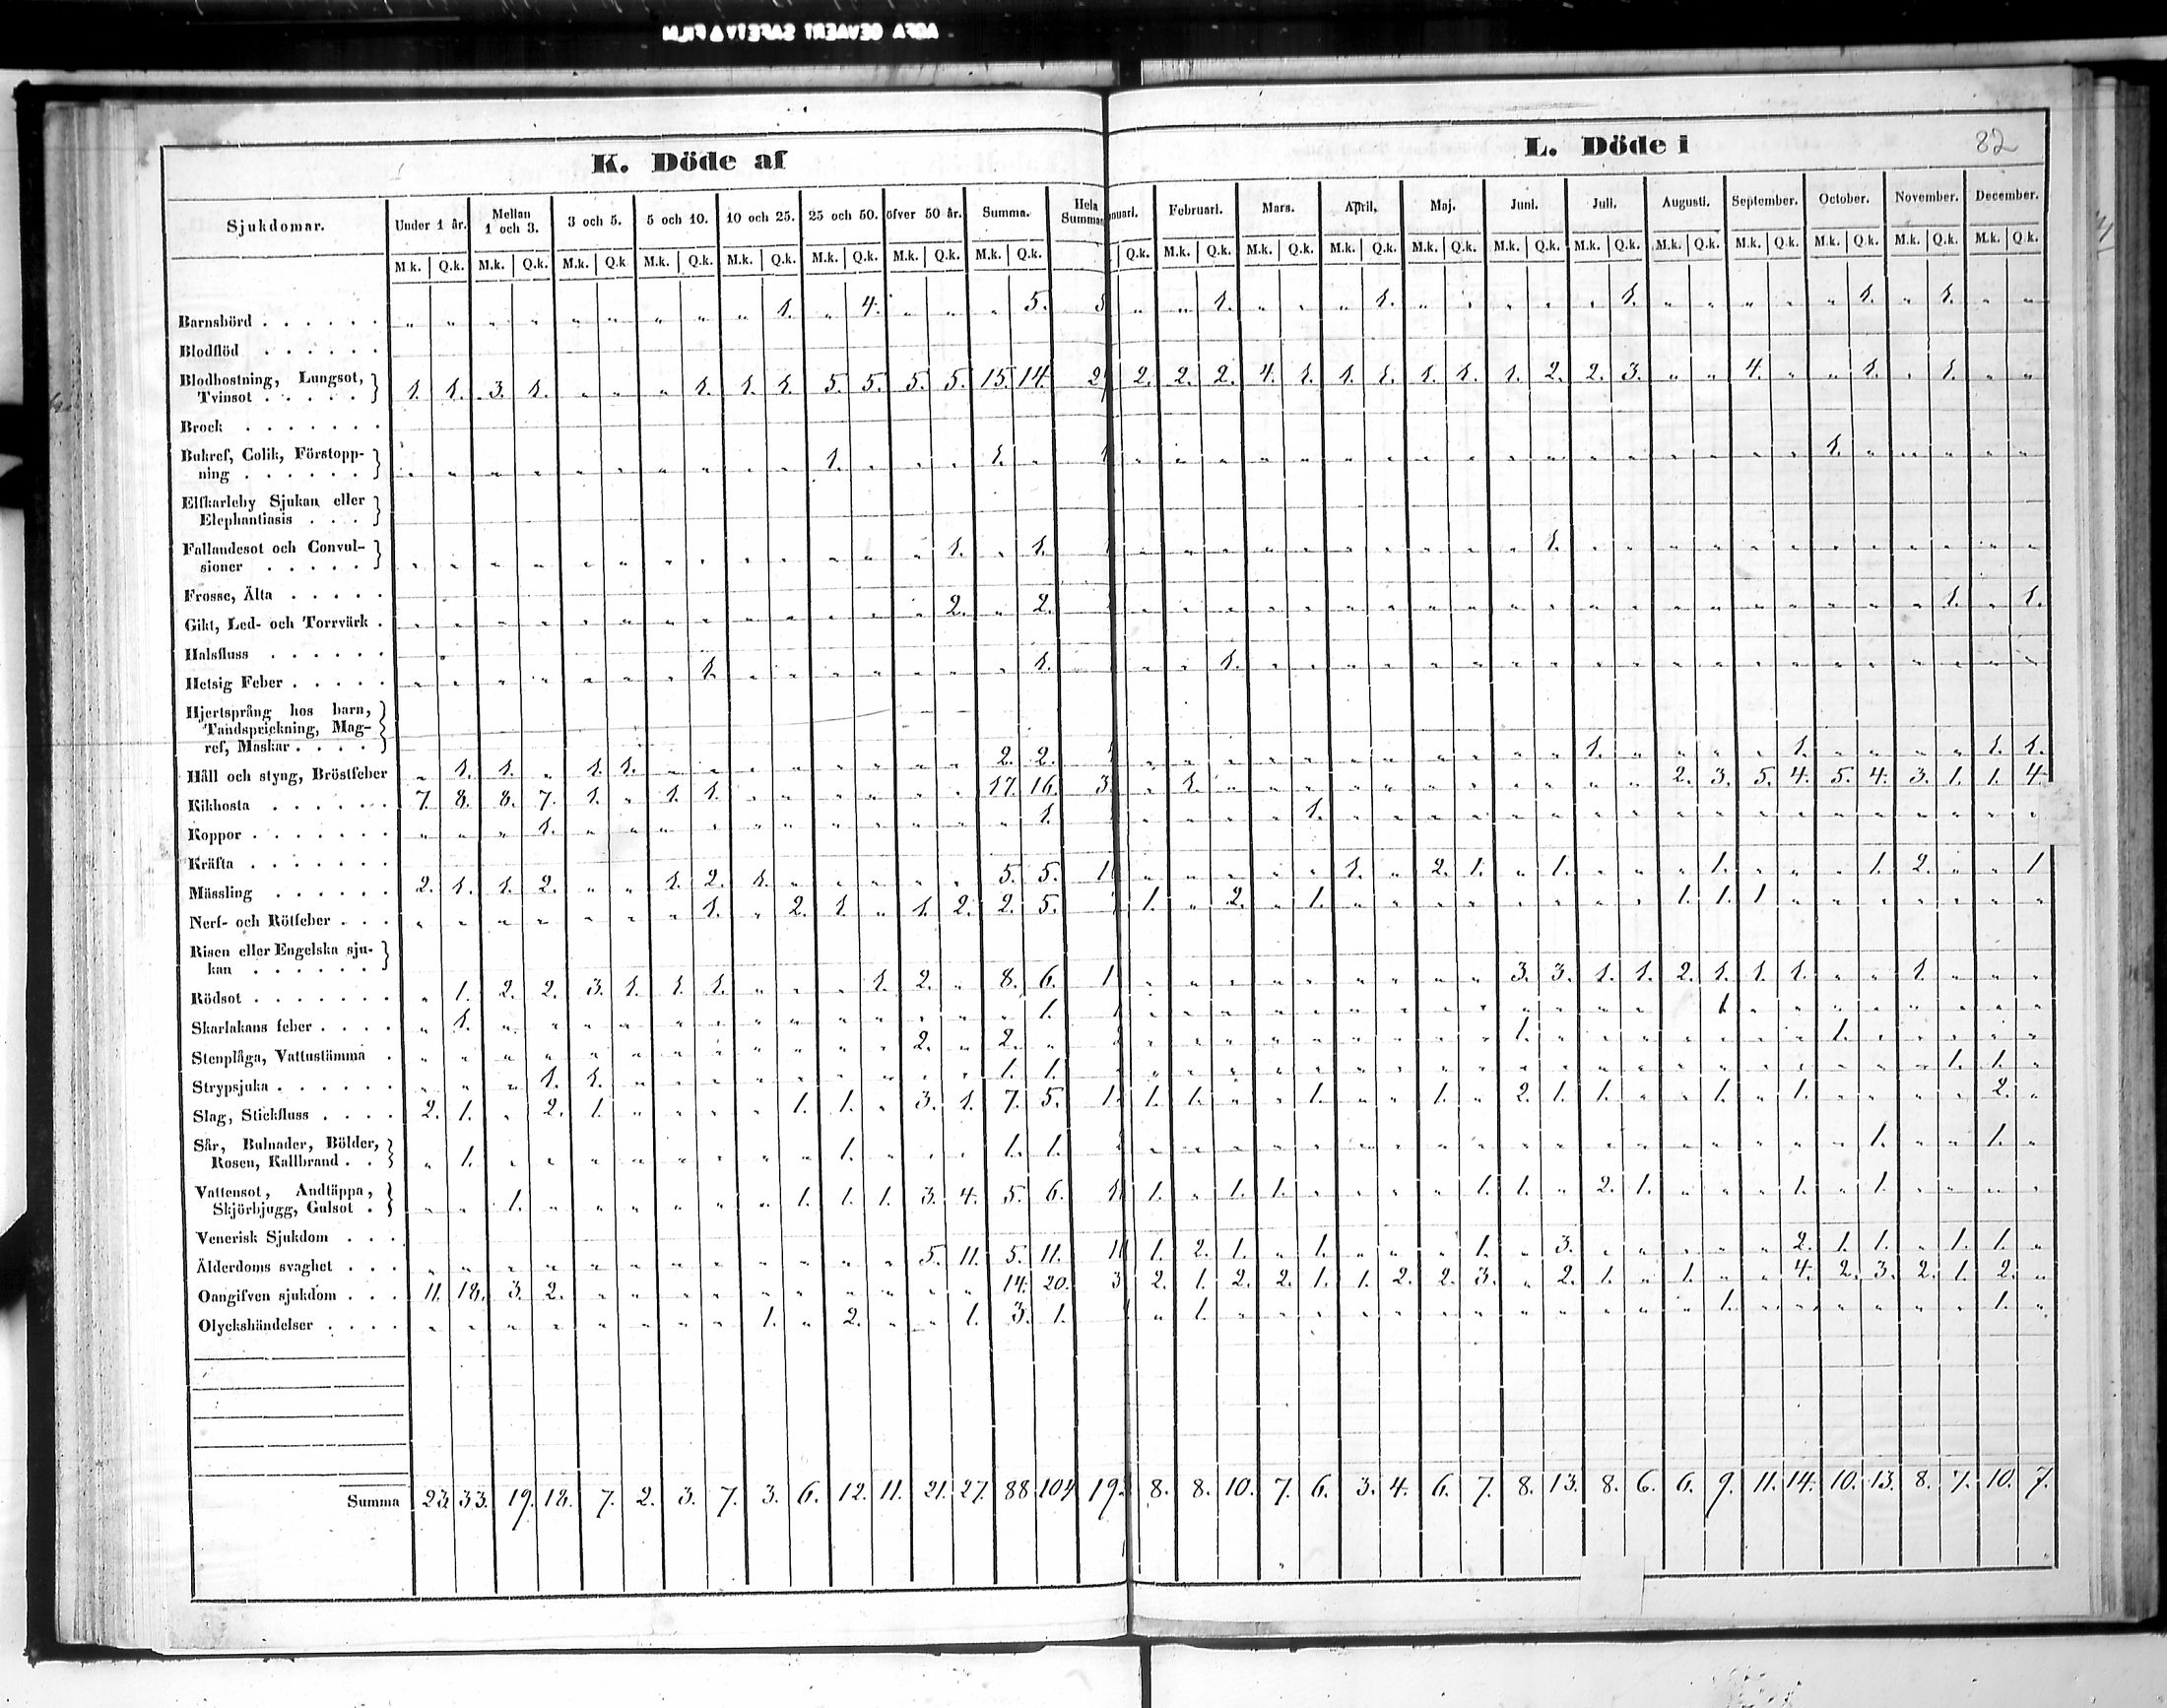 AGFA GEVAERT SAFETY ▲ FILM
K. Döde af
L. Döde i
82
Sjukdomar. Under 1 år. Mellan 1 och 3. 3 och 5. 5 och 10. 10 och 25. 25 och 50. öfver 50 år. Summa. Hela Summan
nuari. Februari. Mars. April. Maj. Juni. Juli. Augusti. September. October. November. December.
M.k. Q.k. M.k. Q.k. M.k. Q.k. M.k. Q.k. M.k. Q.k. M.k. Q.k. M.k. Q.k. M.k. Q.k.
Q.k. M.k. Q.k. M.k. Q.k. M.k. Q.k. M.k. Q.k. M.k. Q.k. M.k. Q.k. M.k. Q.k. M.k. Q.k. M.k. Q.k. M.k. Q.k. M.k. Q.k.
Barnsbörd . . . . . . „ „ „ „ „ „ „ „ „ 1. „ 4. „ „ „ 5. 5 „ „ 1. „ „ „ 1. „ „ „ „ „ 1. „ „ „ „ „ 1. „ 1. „ „
Blodflöd . . . . . .
Blodhostning, Lungsot,
Tvinsot . . . . . 1. 1. 3. 1. „ „ „ 1. 1. 1. 5. 5. 5. 5. 15. 14. 2 2. 2. 2. 4. 1. 1. 1. 1. 1. 1. 2. 2. 3. „ „ 4. „ „ 1. „ 1. „ „
Brock . . . . . . .
Bukref, Colik, Förstopp-
ning . . . . . . „ „ „ „ „ „ „ „ „ „ 1. „ „ „ 1. „ 1 „ „ „ „ „ „ „ „ „ „ „ „ „ „ „ „ „ 1. „ „ „ „ „
Elfkarleby Sjukan eller
Elephantiasis . . .
Fallandesot och Convul-
sioner . . . . . „ „ „ „ „ „ „ „ „ „ „ „ „ 1. „ 1. „ „ „ „ „ „ „ „ „ „ 1. „ „ „ „ „ „ „ „ „ „ „ „
Frosse, Älta . . . . .
Gikt, Led- och Torrvärk . „ „ „ „ „ „ „ „ „ „ „ „ „ 2. „ 2. „ „ „ „ „ „ „ „ „ „ „ „ „ „ „ „ „ „ „ „ 1. „ 1.
Halsfluss . . . . . .
Hetsig Feber . . . . . „ „ „ „ „ „ „ 1. „ „ „ „ „ „ „ 1. „ „ 1. „ „ „ „ „ „ „ „ „ „ „ „ „ „ „ „ „ „ „ „
Hjertsprång hos barn,
Tandsprickning, Mag-
ref, Maskar . . . .
Håll och styng, Bröstfeber „ 1. 1. „ 1. 1. „ „ „ „ „ „ „ „ 2. 2. „ „ „ „ „ „ „ „ „ „ „ 1. „ „ „ „ 1. „ „ „ „ 1. 1.
Kikhosta . . . . . . 7. 8. 8. 7. 1. „ 1. 1. „ „ „ „ „ „ 17. 16. 3 „ 1. „ „ „ „ „ „ „ „ „ „ „ 2. 3. 5. 4. 5. 4. 3. 1. 1. 4.
Koppor . . . . . . . „ „ „ 1. „ „ „ „ „ „ „ „ „ „ „ 1. „ „ „ „ 1. „ „ „ „ „ „ „ „ „ „ „ „ „ „ „ „ „ „
Kräfta . . . . . . .
Mässling . . . . . . 2. 1. 1. 2. „ „ 1. 2. 1. „ „ „ „ „ 5. 5. 1 „ „ „ „ „ 1. „ 2. 1. „ 1. „ „ „ 1. „ „ „ 1. 2. „ „ 1
Nerf- och Rötfeber . . . „ „ „ „ „ „ „ 1. „ 2. 1. „ 1. 2. 2. 5. 1. „ 2. „ 1. „ „ „ „ „ „ „ „ 1. 1. 1 „ „ „ „ „ „ „
Risen eller Engelska sju-
kan . . . . . .
Rödsot . . . . . . . „ 1. 2. 2. 3. 1. 1. 1. „ „ „ 1. 2. „ 8. 6. 1 „ „ „ „ „ „ „ „ „ 3. 3. 1. 1. 2. 1. 1. 1. „ „ 1. „ „ „
Skarlakans feber . . . . „ 1. „ „ „ „ „ „ „ „ „ „ „ „ „ 1. „ „ „ „ „ „ „ „ „ „ „ „ „ „ 1 „ „ „ „ „ „ „ „
Stenplåga, Vattustämma . „ „ „ „ „ „ „ „ „ „ „ „ 2. „ 2. „ „ „ „ „ „ „ „ „ „ 1. „ „ „ „ „ „ „ 1. „ „ „ „ „
Strypsjuka . . . . . . „ „ „ 1. 1. „ „ „ „ „ „ „ „ „ 1. 1. „ „ „ „ „ „ „ „ „ „ „ „ „ „ „ „ „ „ „ „ 1. 1. „
Slag, Stickfluss . . . . 2. 1. „ 2. 1. „ „ „ „ 1. 1. „ 3. 1. 7. 5. 1 1. 1. „ „ 1. „ „ 1. „ 2. 1. 1. „ „ 1. „ 1. „ „ „ „ 2. „
Sår, Bulnader, Bölder,
Rosen, Kallbrand . . „ 1. „ „ „ „ „ „ „ „ 1. „ „ „ 1. 1. „ „ „ „ „ „ „ „ „ „ „ „ „ „ „ „ „ „ 1. „ „ 1. „
Vattensot, Andtäppa,
Skjörbjugg, Gulsot . „ „ 1. „ „ „ „ „ „ 1. 1. 1. 3. 4. 5. 6. 1 1. „ 1. 1. „ „ „ „ 1. 1. „ 2. 1. „ „ „ 1. „ 1. „ „ „ „
Venerisk Sjukdom . . .
Ålderdoms svaghet . . . „ „ „ „ „ „ „ „ „ „ „ „ 5. 11. 5. 11. 1 1. 2. 1. „ 1. „ „ „ 1. „ 3. „ „ „ „ „ 2. 1. 1. „ 1. 1. „
Oangifven sjukdom . . . 11. 18. 3. 2. „ „ „ „ „ „ „ „ „ „ 14. 20. 3 2. 1. 2. 2. 1. 1. 2. 2. 3. „ 2. 1. „ 1. „ „ 4. 2. 3. 2. 1. 2. „
Olyckshändelser . . . . „ „ „ „ „ „ „ „ 1. „ 2. „ „ 1. 3. 1. „ 1. „ „ „ „ „ „ „ „ „ „ „ „ 1. „ „ „ „ „ „ 1. „
Summa 23. 33. 19. 18. 7. 2. 3. 7. 3. 6. 12. 11. 21. 27. 88 104 19 8. 8. 10. 7. 6. 3. 4. 6. 7. 8. 13. 8. 6. 6. 9. 11. 14. 10. 13. 8. 7. 10. 7.